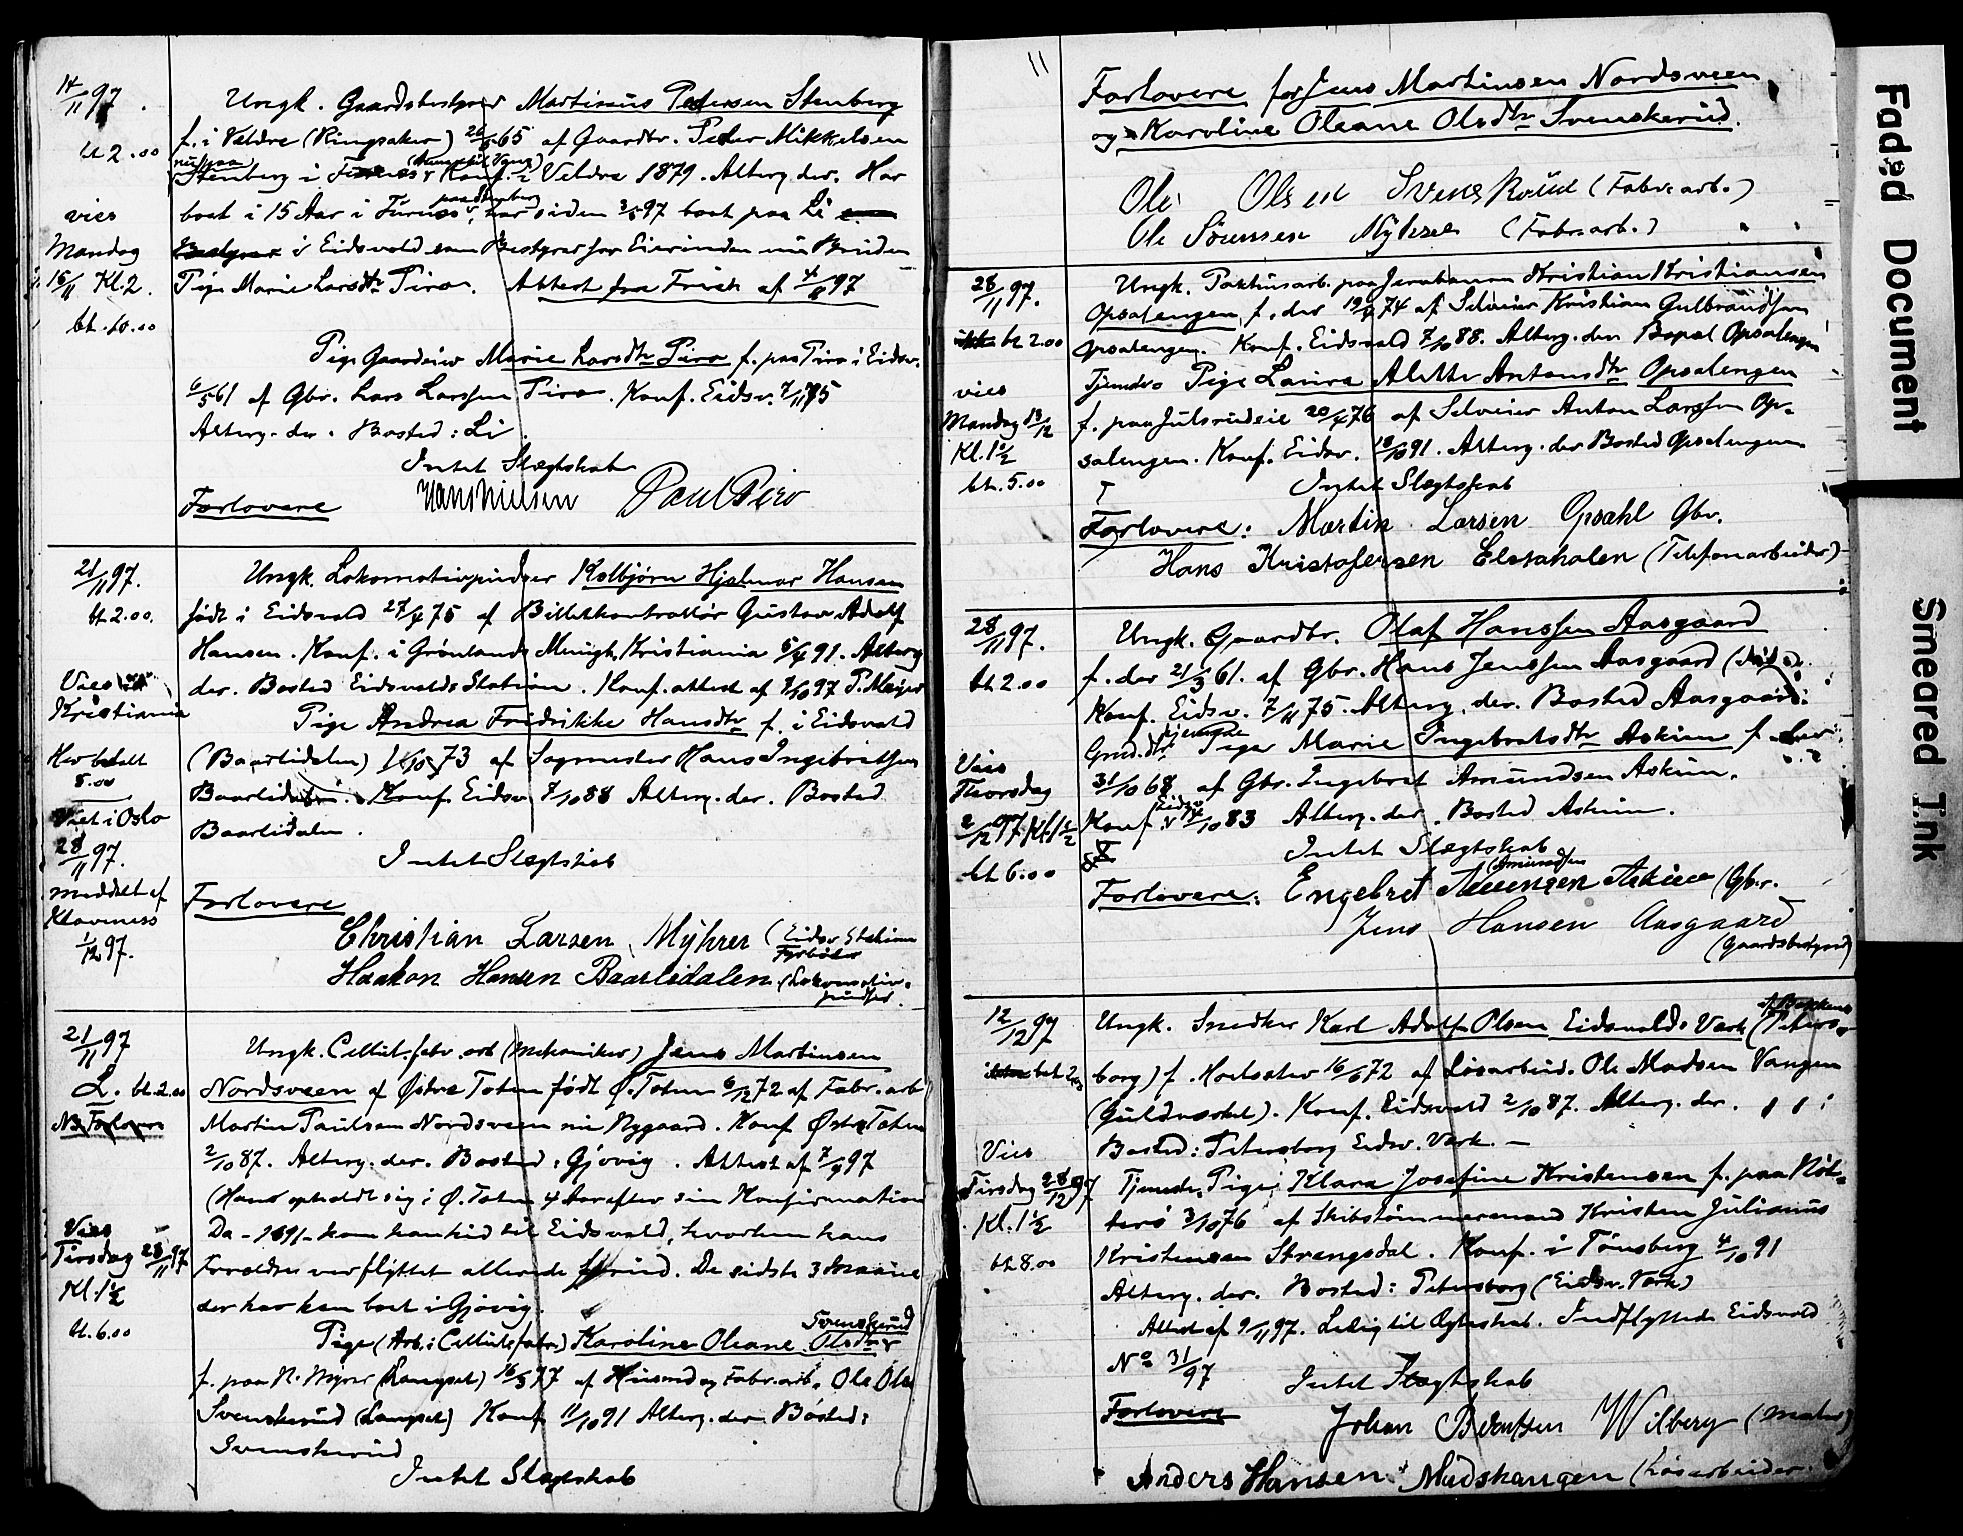 14/11 97.
bt 2.00
vies
Mandag
15/11 Kl. 2.
bt. 10.00
Ungk. Gaardsbestyrer Martinus Pedersen Stenberg
f. i Veldre (Ringsaker) 65 af Gaardbr. Peder Mikkelsen
Stenberg i Konf. i Veldre 1879. Alterg. der. Har
boet i 15 Aar i Furnes, har siden 97 boet paa Li
i Eidsvold som Bestyrer for Eierinden nu Bruden
Pige Marie Larsdtr Piro. Attest fra Frich af 97
Pige Gaardeier Marie Larsdtr Piro f. paa Piro i Eidsv.
6/5 61 af Gbr. Lars Larssen Piro. Konf. Eidsv. 7/11 75
Alterg. der. Bosted: Li.
Intet Slægtskab
Forlovere Hans Nielsen Paul Piro
21/11 97.
bt 2.00.
Vies i
Kristiania
Her betalt
8.00
Viet i Oslo
28/11 97.
meddelt af
Klaveness
1/12 97.
Ungk. Lokomotivpudser Kolbjørn Hjalmar Hansen
født i Eidsvold 27/4 75 af Billetkontrollør Gustav Adolf
Hansen. Konf. i Grønlands Menigh. Kristiania 5/4 91. Alterg.
der. Bosted Eidsvolds Station. Konf. attest af 97 P. Meyer
Pige Andrea Fridrikke Hansdtr f. i Eidsvold
(Baarlidalen) 73 af Sagmester Hans Ingebritsen
Baarlidalen. Konf. Eidsv. 7/10 88 Alterg. der. Bosted
Baarlidalen.
Intet Slægtskab
Forlovere
Christian Larsen Myhrer (Eidsv. Station
Fyrbøter
Haakon Hansen Baarlidalen (Lokomotiv-
pudser.
21/11 97
L. bt. 2.00
NB Forlovere
Vies
Tirsdag 23/11 97
Kl. 1½
bt. 6.00
Ungk. Cellul. fabr. arb (Mekaniker) Jens Martinsen
Nordsveen af Østre Toten født Ø. Toten 6/12 72 af Fabr. arb
Martin Paulsen Nordsveen nu Nygaard. Konf Østre Toten
2/10 87. Alterg. der. Bosted: Gjøvig. Attest af 7/9 97
(Hans opholdt sig i Ø. Toten 4 Aar efter sin Konfirmation
Da - 1891 - kom han hid til Eidsvold, hvorhen hans
Forældre var flyttet allerede forud. De sidste 3 Maaneder
har han boet i Gjøvig.
Svenskerud
Pige (Arb. i Cellulosefabr.) Karoline Oleane Olsdtr
f. paa N. Myrer (Langset) 16/5 77 af Husmd og Fabr. arb. Ole Olsen
Svenskerud (Langset) Konf 11/10 91 Alterg. der. Bosted:
Svenskerud
Intet Slægtskab
11
Forlovere for Jens Martinsen Nordsveen
og Karoline Oleane Olsdtr Svenskerud.
Ole Olsen Svenskrud (Fabr. arb.)
Ole Sørensen (Fabr. arb.)
28/11 97.
bt 2.00
vies
Mandag 13/12
Kl. 1½
bt. 5.00
Ungk. Pakhusarb. paa Jernbanen Kristian Kristiansen
Opsalengen f. der 74 af Selveier Kristian Gulbrandsen
Opsalengen. Konf. Eidsvold 7/10 88. Alterg. der. Bopæl Opsalengen
Tjenende Pige Laura Alette Antonsdtr Opsalengen
f. paa Julsrudeie 20/4 76 af Selveier Anton Larssen Op-
salengen. Konf. Eidsv. 91. Alterg. der Bosted Opsalengen
Intet Slægtskab
Forlovere: Martin Larsen Opsahl Gbr.
Hans Kristofersen Elstaholen (Telefonarbeider)
28/11 97.
bt 2.00
Vies
Thorsdag
2/12 97. Kl. 1½
bt 6.00
Ungk. Gaardbr. Olaf Hanssen Aasgaard
f. der 21/3 61. af Gbr. Hans Jenssen Aasgaard
Konf. Eidsv. 7/11 75. Alterg. der. Bosted Aasgaard.
hjemme
Grd.dtr Pige Marie Ingebretsdtr Askim f. der
31/10 68 af Gbr. Ingebret Amundsen Askim.
Eidsv
Konf. 83 Alterg. der. Bosted Askim.
Intet Slægtskab
(Amundsen
Forlovere: Engebret Amensen Askim (Gbr.
Jens Hansen Aasgaard
(Gaardsbestyrer)
12/12 97
bet 2.00
Vies
Tirsdag 28/12 97
Kl. 1½
bt 8.00
Ungk. Snedker Karl Adolf Olsen Eidsvolds Værk (Peters-
borg) f. 16/6 72 af Løsarbeid. Ole Madsen Vangen
(Guldværket). Konf. Eidsvold 2/10 87. Alterg. der.
Bosted: Petersborg Eidsv. Værk. —
Tjenende Pige Klara Josefine Kristensen f. paa Nöt-
terö 3/10 76 af Skibstömmermand Kristen Julianus
Kristensen Strengsdal. Konf. i Tønsberg 4/10 91
Alterg. der. Bosted: Petersborg (Eidsv. Værk)
Attest af 9/11 97. Ledig til Ægteskab. Indflyttede Eidsvold
No 31/97
Intet Slægtskab
Forlovere
Johan Berntsen Wilberg (Maler)
Anders Hansen Madshaugen (Løsarbeider.
Faded Document
Smeared Ink